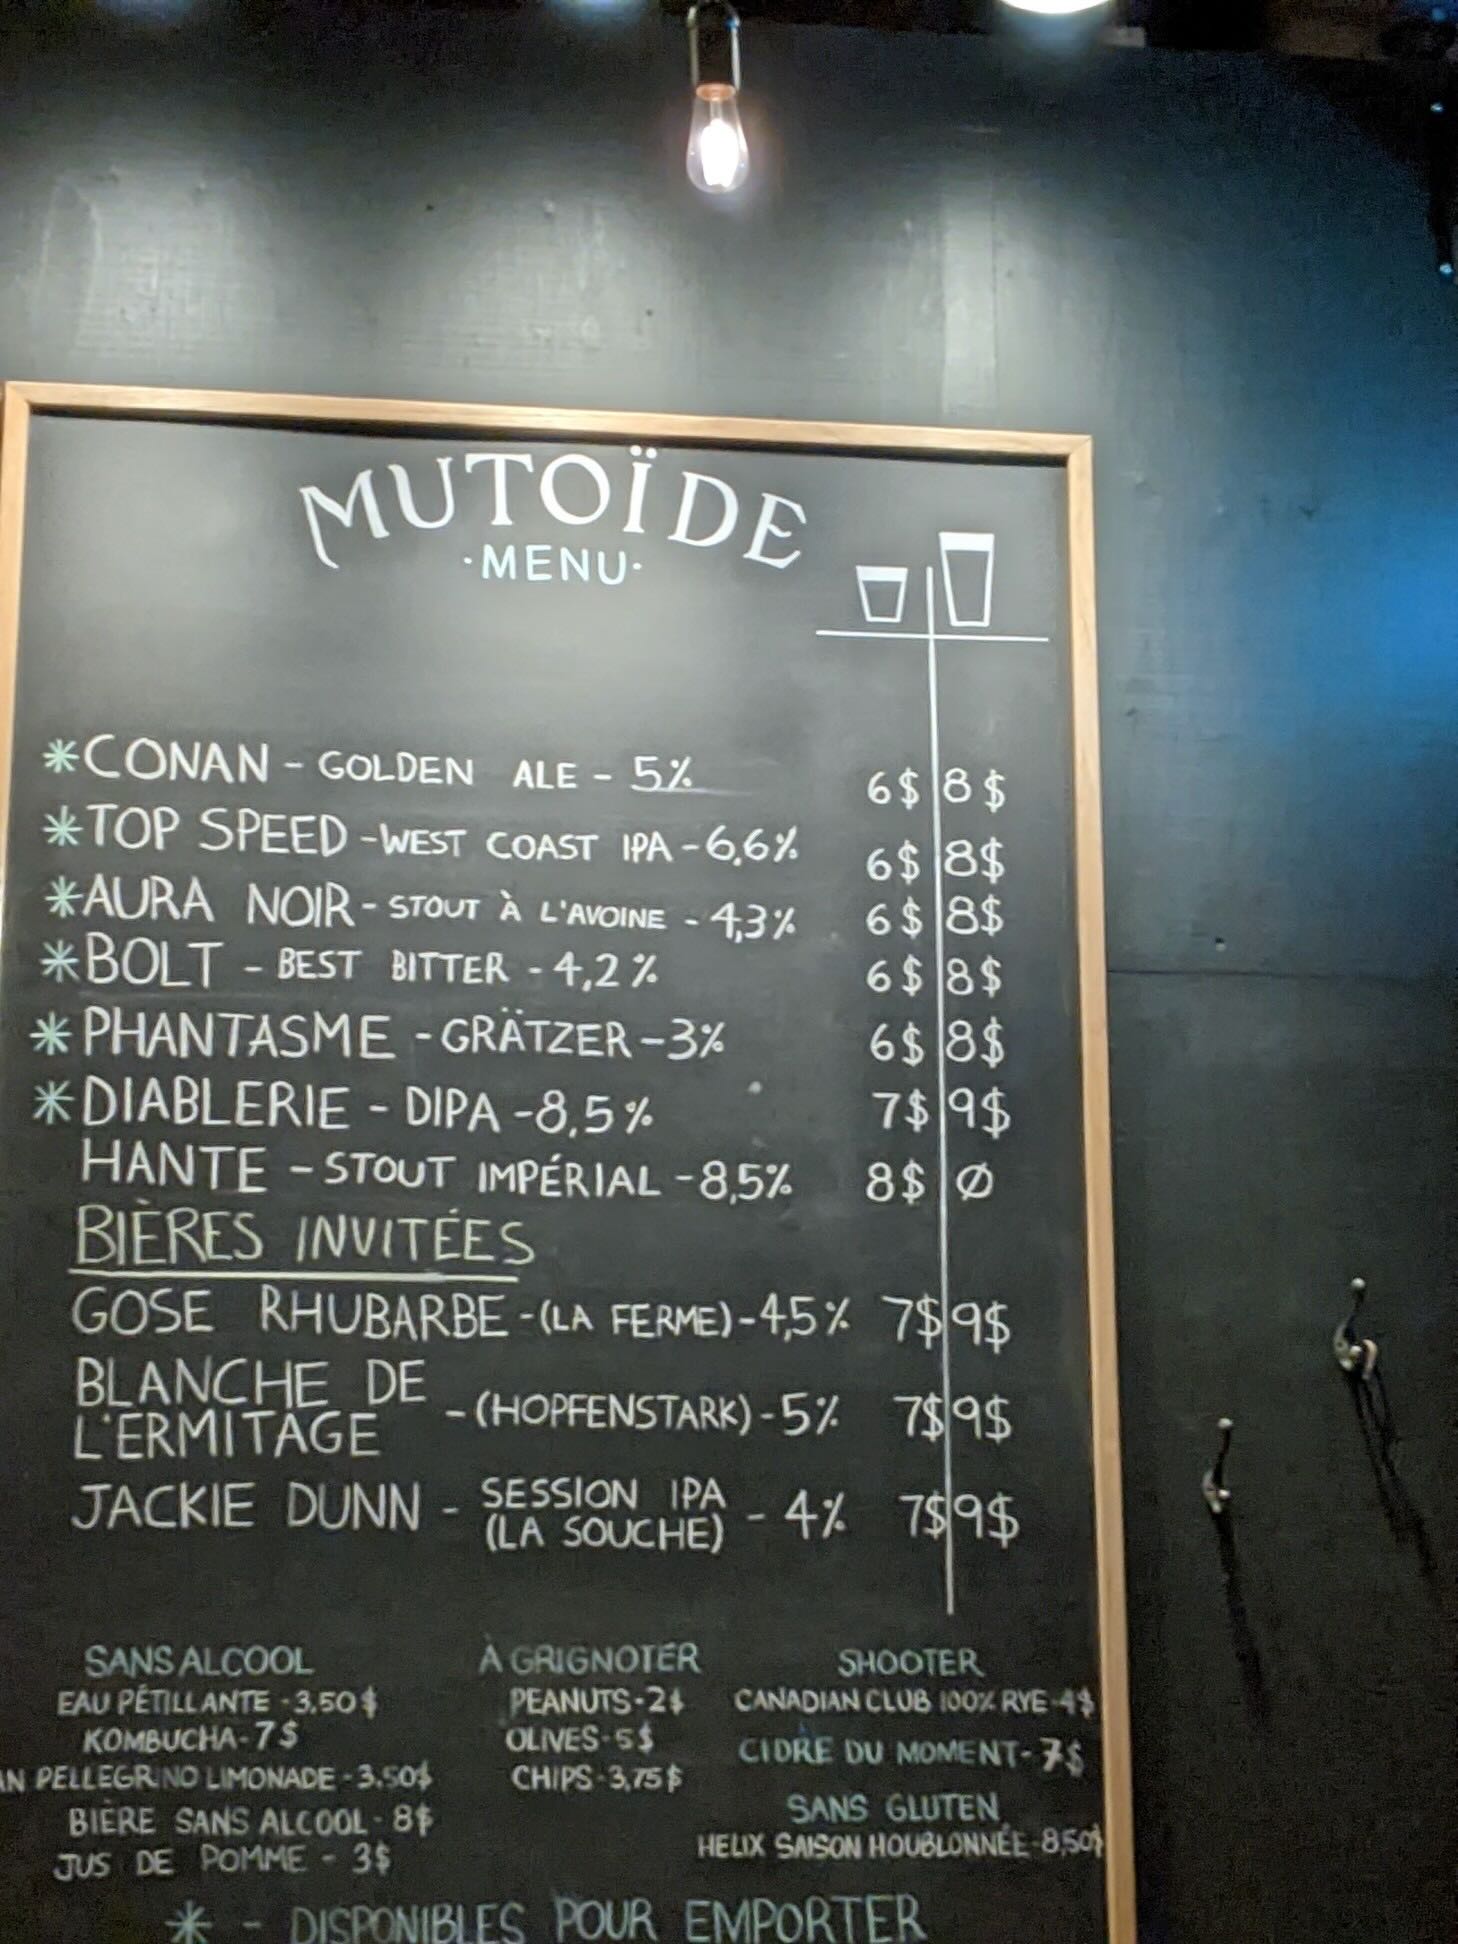 MUTOÏDE
·MENU·
*CONAN - GOLDEN ALE - 5% 6$ 8$
*TOP SPEED - WEST COAST IPA - 6,6% 6$ 8$
*AURA NOIR - STOUT À L'AVOINE - 4,3% 6$ 8$
*BOLT - BEST BITTER - 4,2% 6$ 8$
*PHANTASME - GRÄTZER - 3% 6$ 8$
*DIABLERIE - DIPA - 8,5% 7$ 9$
HANTE - STOUT IMPÉRIAL - 8,5% 8$ Ø
BIÈRES INVITÉES
GOSE RHUBARBE - (LA FERME) - 4,5% 7$ 9$
BLANCHE DE
L'ERMITAGE - (HOPFENSTARK) - 5% 7$ 9$
JACKIE DUNN - SESSION IPA
(LA SOUCHE) - 4% 7$ 9$
SANS ALCOOL
EAU PÉTILLANTE - 3.50$
KOMBUCHA - 7$
AN PELLEGRINO LIMONADE - 3.50$
BIÈRE SANS ALCOOL - 8$
JUS DE POMME - 3$
À GRIGNOTER
PEANUTS - 2$
OLIVES - 5$
CHIPS - 3,75$
SHOOTER
CANADIAN CLUB 100% RYE - 4$
CIDRE DU MOMENT - 7$
SANS GLUTEN
HELIX SAISON HOUBLONNÉE - 8,50$
* - DISPONIBLES POUR EMPORTER